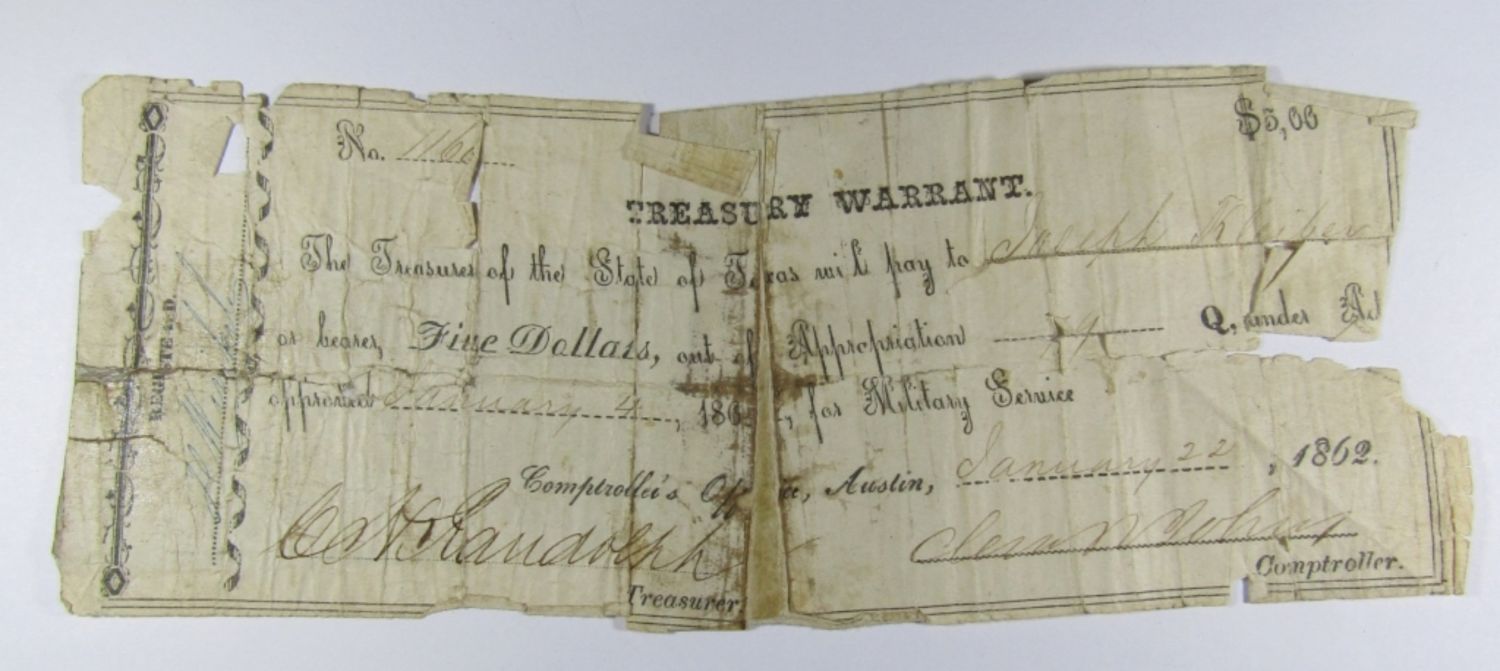 $5,00
No. 1160
TREASURY WARRANT.
The Treasurer of the State of Texas will pay to Joseph
or bearer, Five Dollars, out of Appropriation 79 Q, under Act
approved January 4, 186, for Military Service
Comptroller's Office, Austin, January 22, 1862.
C. H. Randolph
Clem R Johns
Treasurer
Comptroller.
REGISTERED